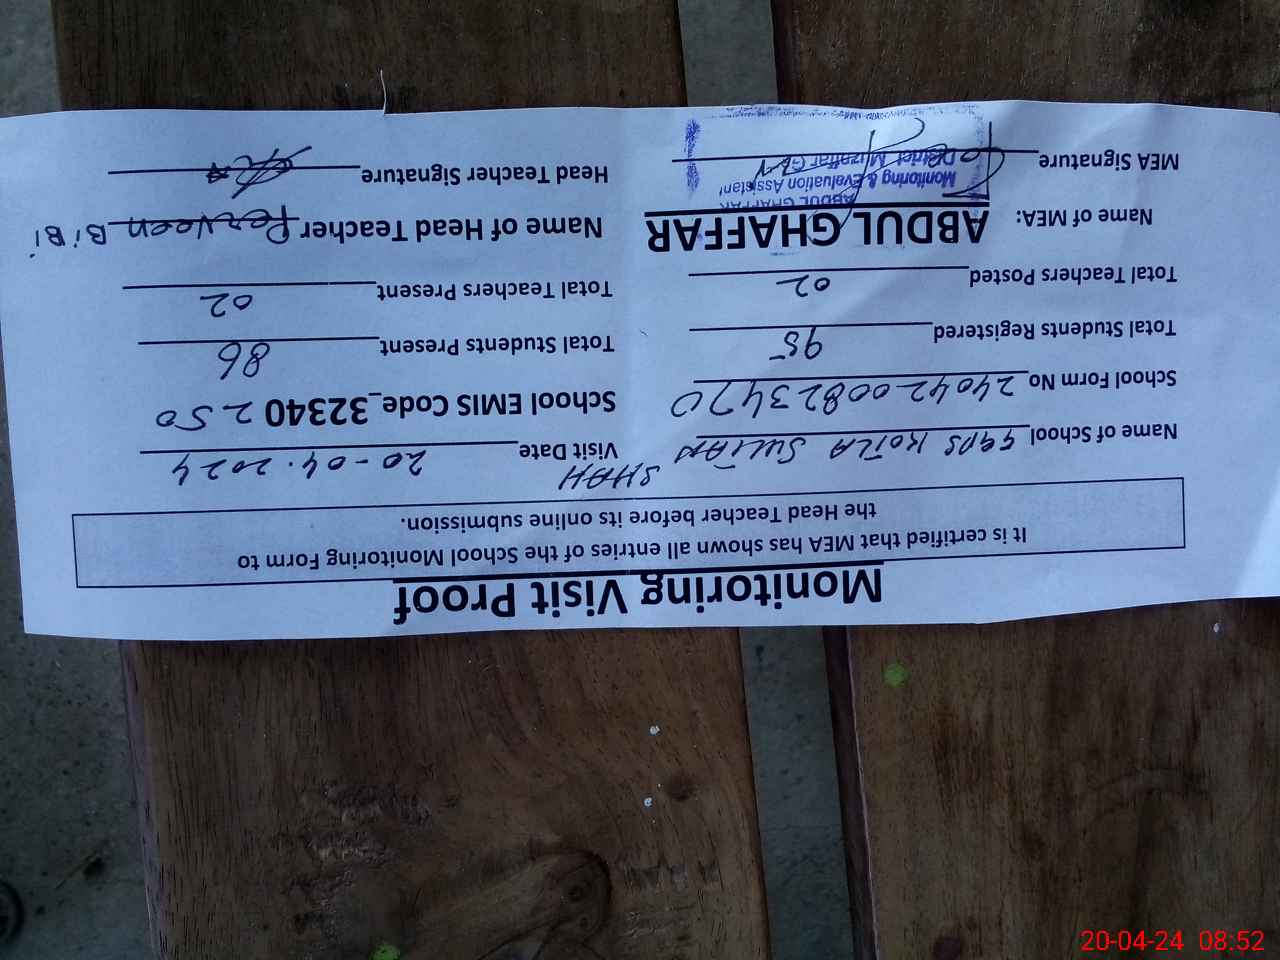 Monitoring Visit Proof
It is certified that MEA has shown all entries of the School Monitoring Form to
the Head Teacher before its online submission.
Name of School GGPS KOTLA SULTAN SHAH
Visit Date 20-04.2024
School Form No 2404200823470
School EMIS Code_32340 250
Total Students Registered 95
Total Students Present 86
Total Teachers Posted 02
Total Teachers Present 02
Name of MEA: ABDUL GHAFFAR
Name of Head Teacher Perveen BiBi
MEA Signature
Head Teacher Signature
ABDUL GHAFFAR
Monitoring & Evaluation Assistant
District Muzaffar Garh
20-04-24 08:52